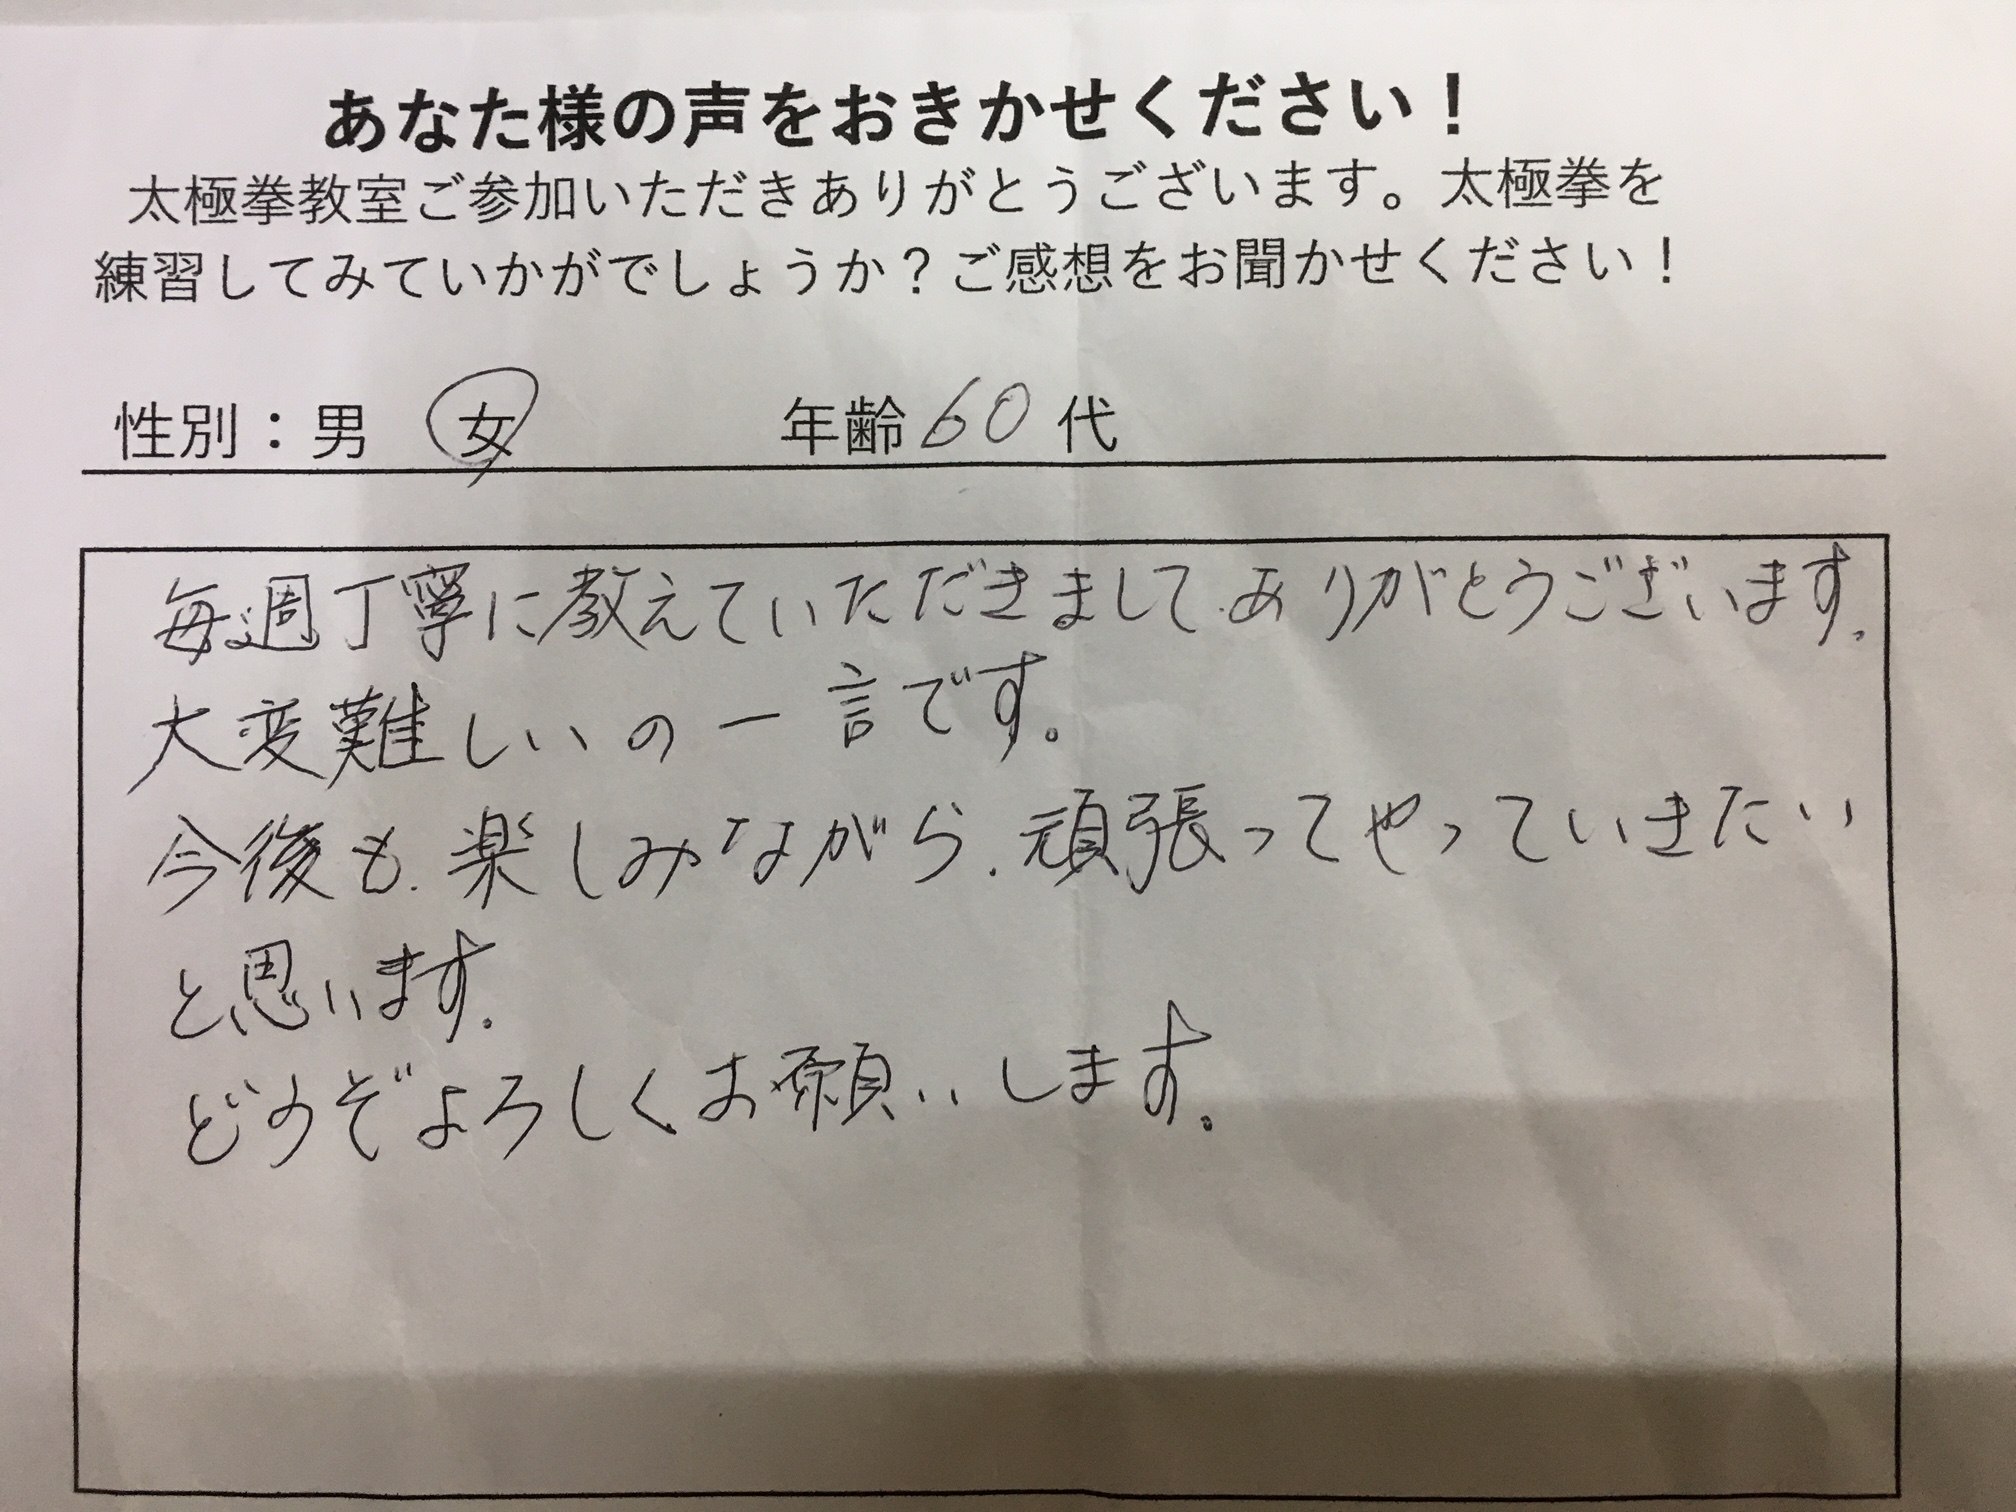 あなた様の声をおきかせください！
太極拳教室ご参加いただきありがとうございます。太極拳を
練習してみていかがでしょうか？ご感想をお聞かせください！
性別：男　女　年齢60代
毎週丁寧に教えていただきましてありがとうございます。
大変難しいの一言です。
今後も、楽しみながら、頑張ってやっていきたい
と思います。
どうぞよろしくお願いします。